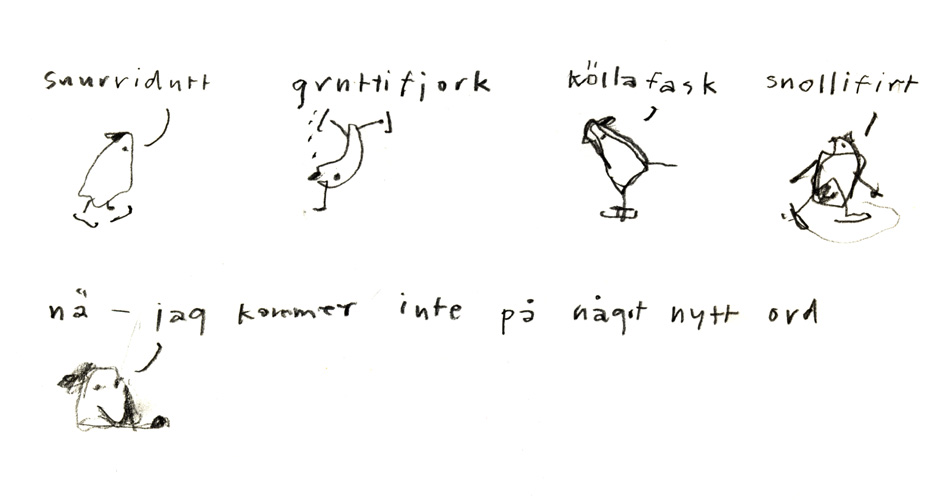 snurridutt gruttifjork köllafask snollifirt
nä - jag kommer inte på något nytt ord